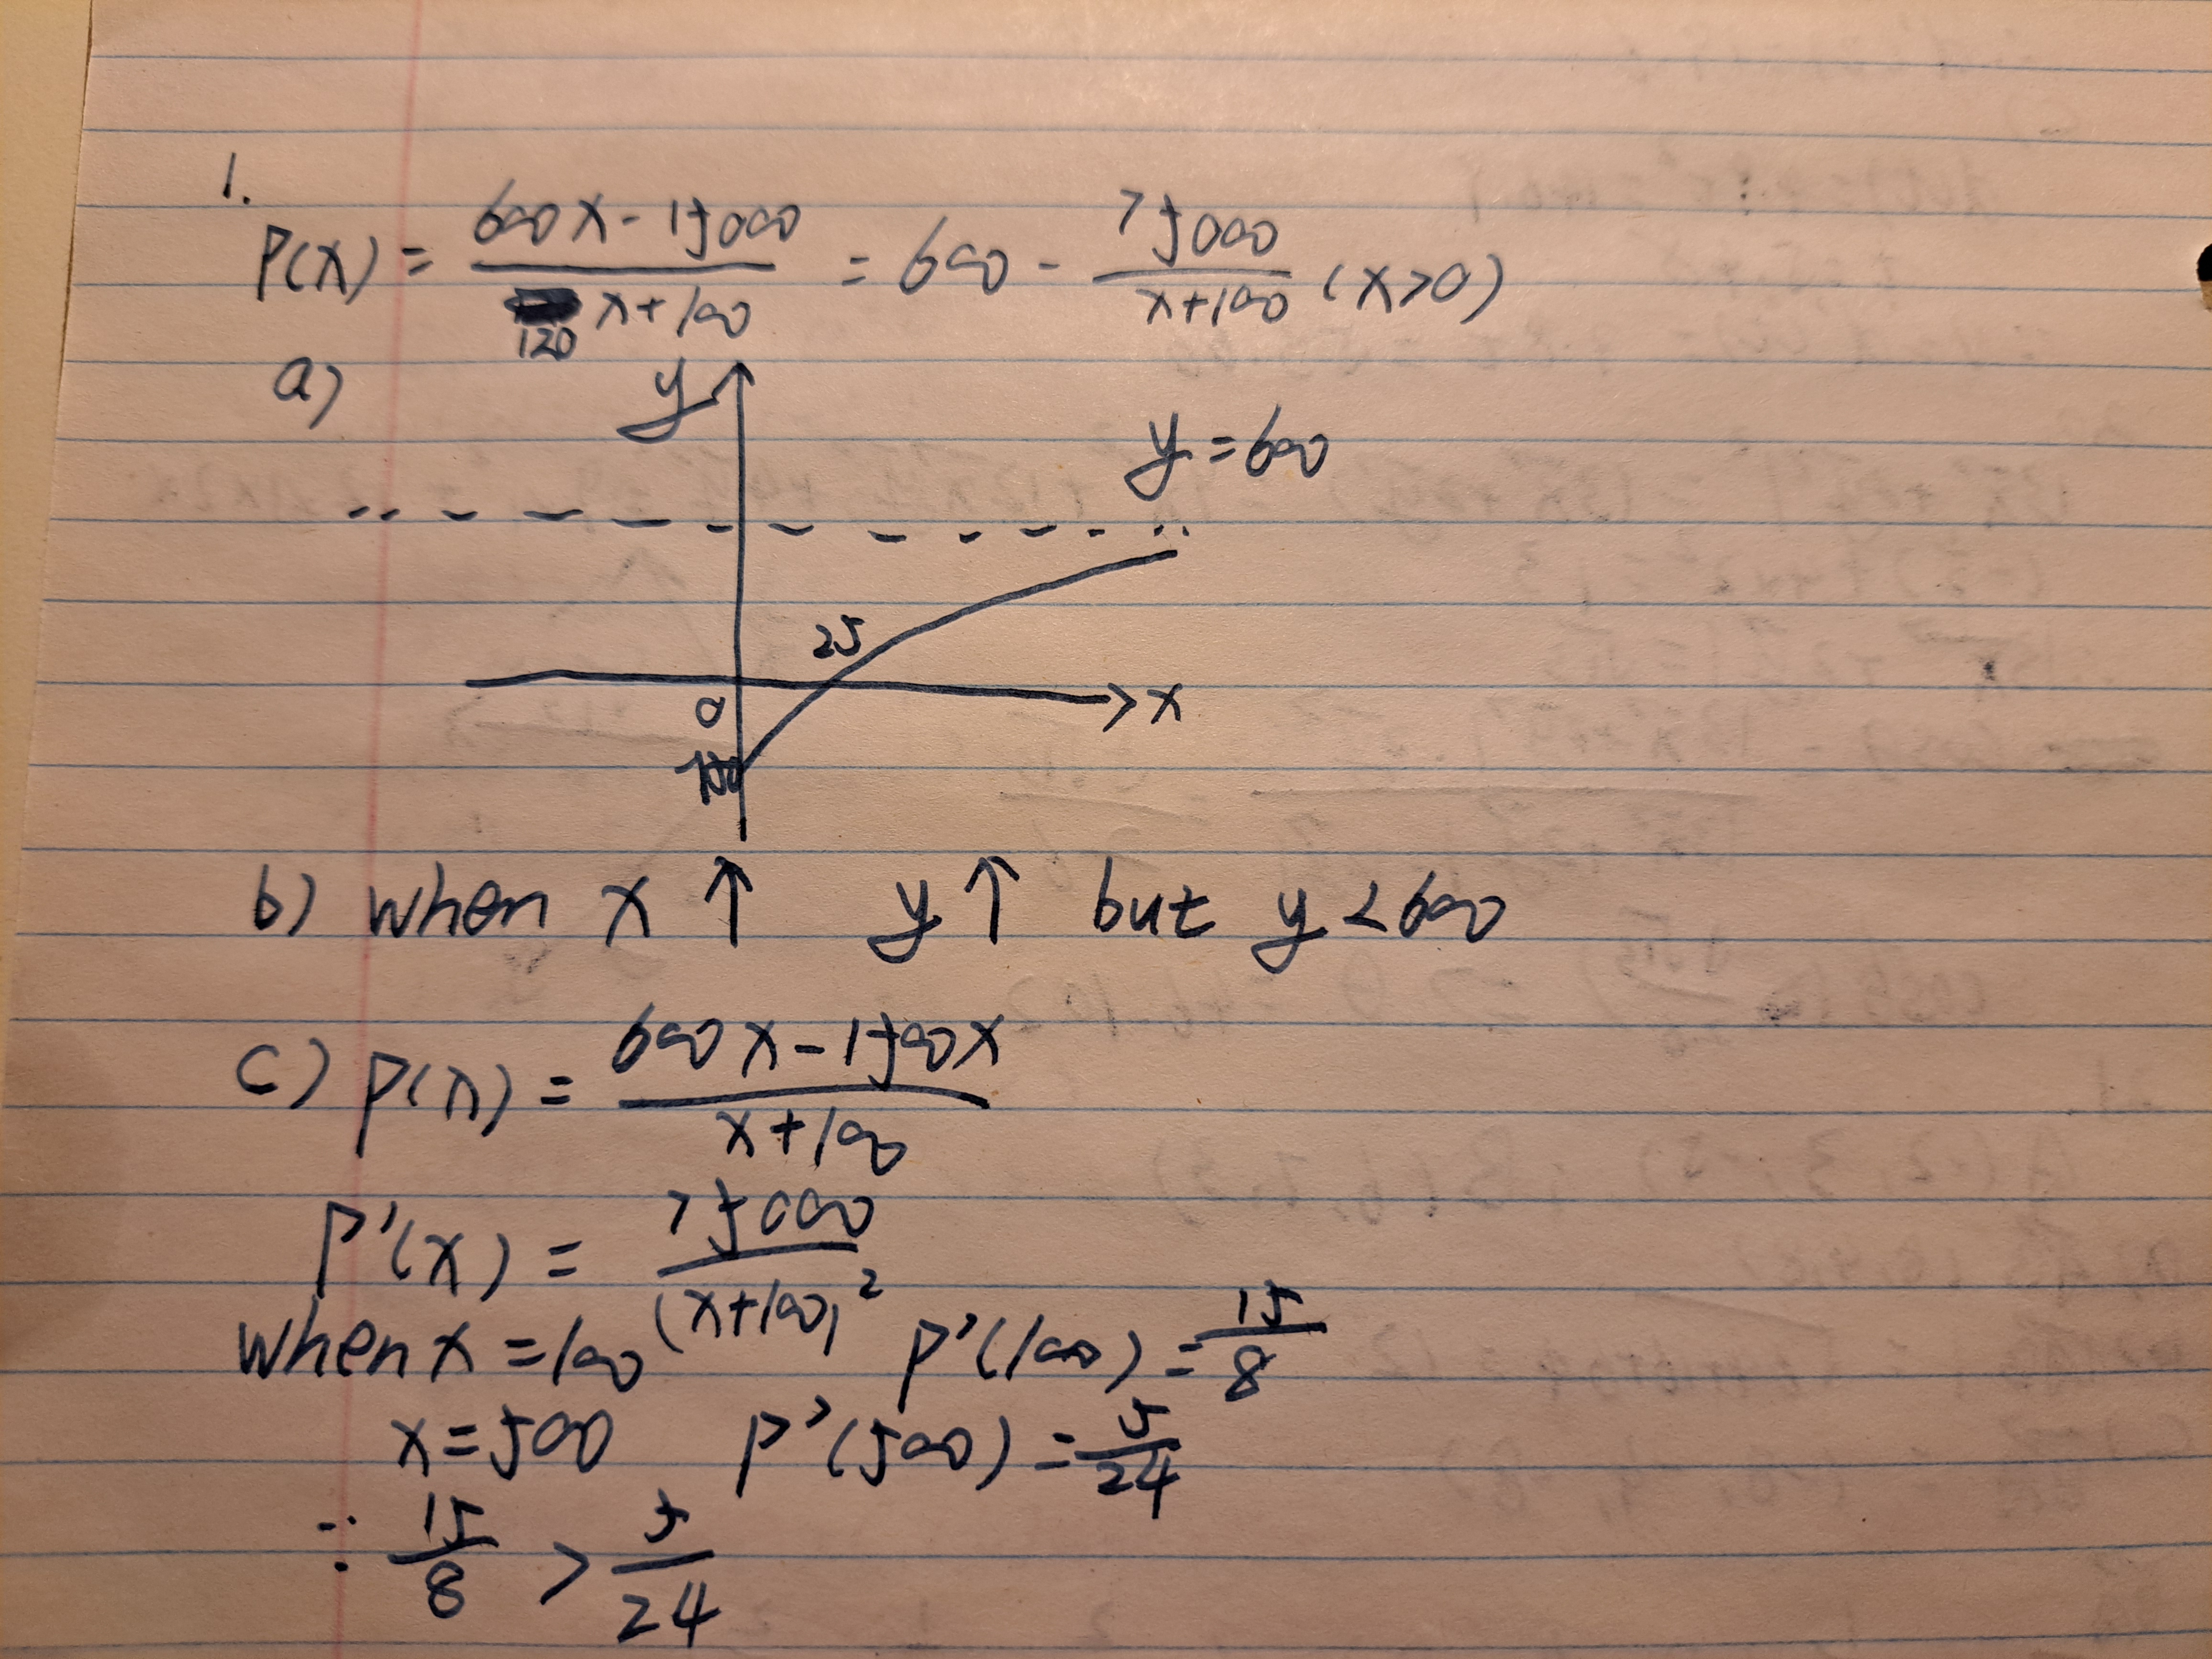 1.
P(x) = (600x - 15000)/(120 x + 100) = 600 - 75000/(x+100) (x>0)
a)
y
y = 600
25
0
x
b) When x ↑ y ↑ but y < 600
c) P(x) = (600x - 1500x)/(x + 100)
P'(x) = 75000/(x+100)²
When x = 100 P'(100) = 15/8
x = 500 P'(500) = 5/24
∴ 15/8 > 5/24